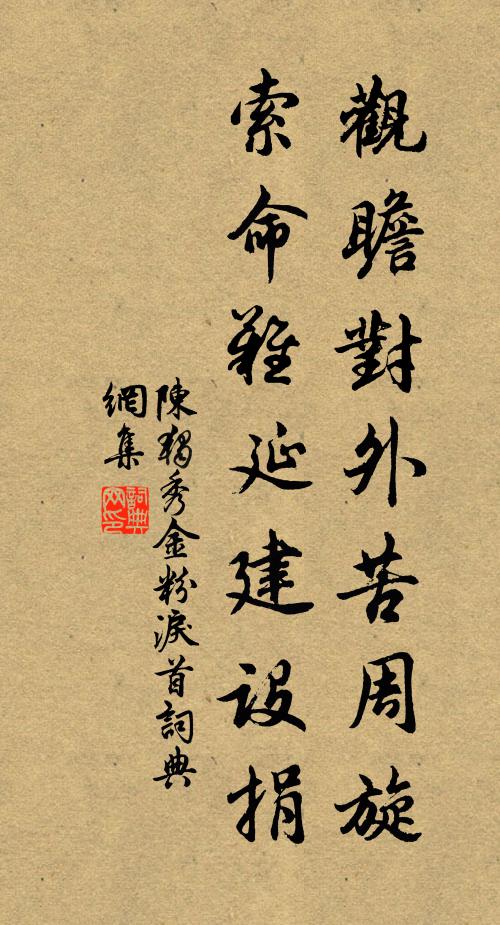 觀瞻對外苦周旋
索命難延建設捐
陳獨秀金粉淚首詞典
網集
詞典網印